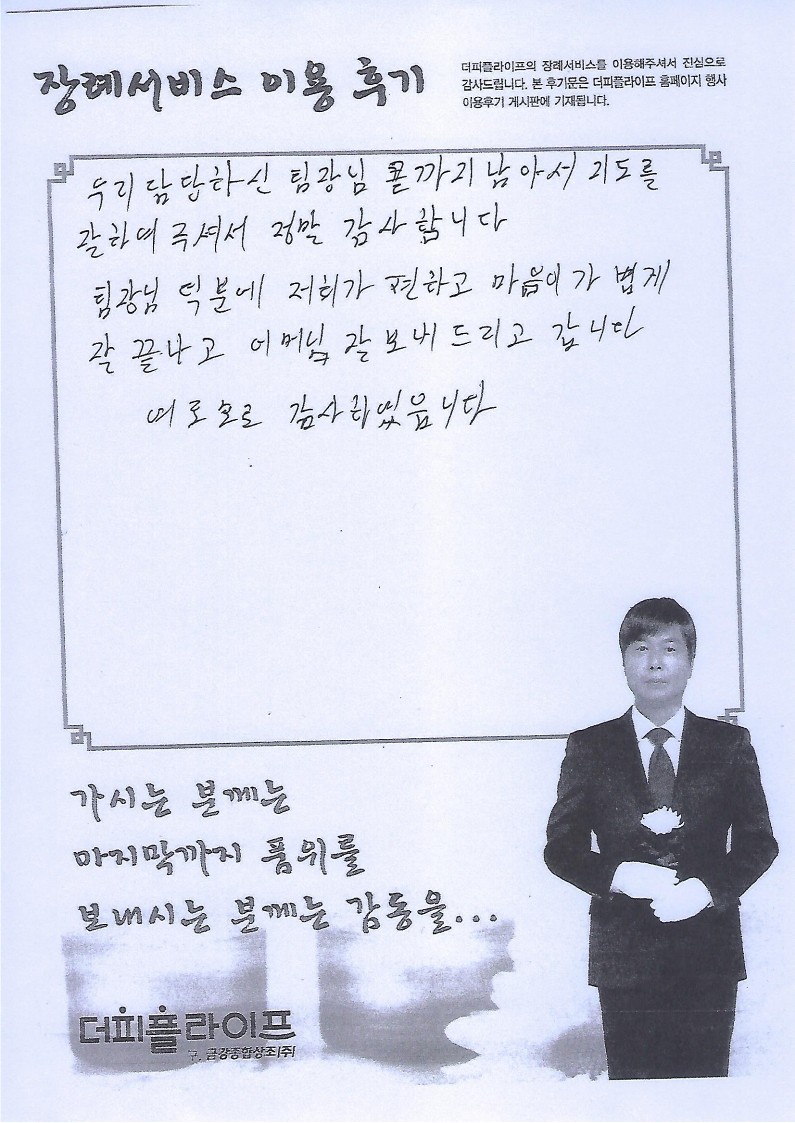 장례서비스 이용 후기
더피플라이프의 장례서비스를 이용해주셔서 진심으로
감사드립니다. 본 후기문은 더피플라이프 홈페이지 행사
이용후기 게시판에 기재됩니다.
우리 담답하신 팀광님 끝까지 남아서 지도를
잘하여 주셔서 정말 감사 합니다
팀광님 덕분에 저희가 편하고 마음이 가 볍게
잘 끝나고 어머님 잘 보내 드리고 갑니다
여로모로 감사하었읍니다
가시는 분께는
마지막까지 품위를
보내시는 분께는 감동을...
더피플라이프
구. 금강종합상조(주)